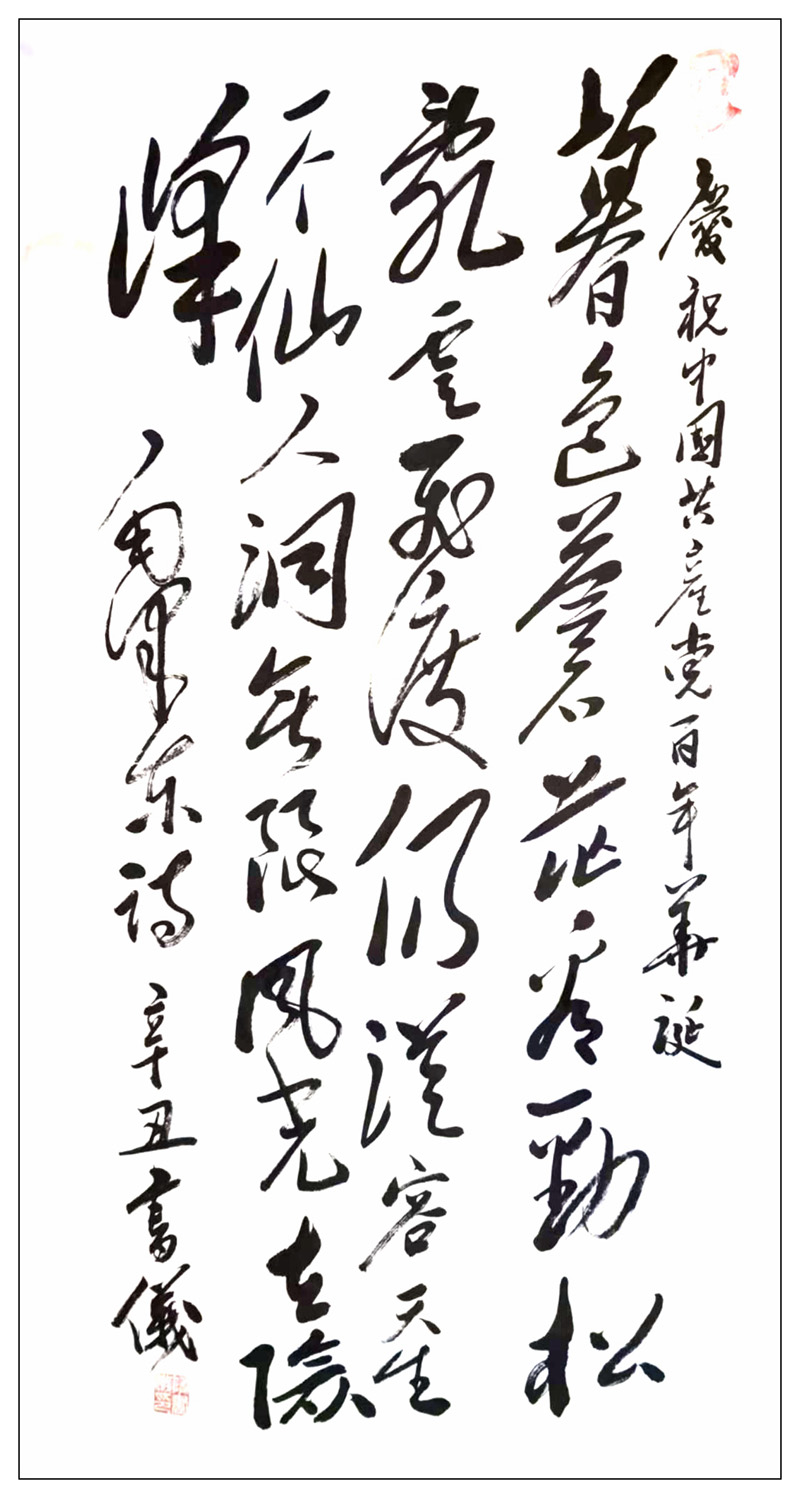 慶祝中國共產党百年華誕
暮色蒼茫看勁松
亂雲飛渡仍從容天生
一个仙人洞無限風光在險
峰 毛澤東詩 辛丑 儀